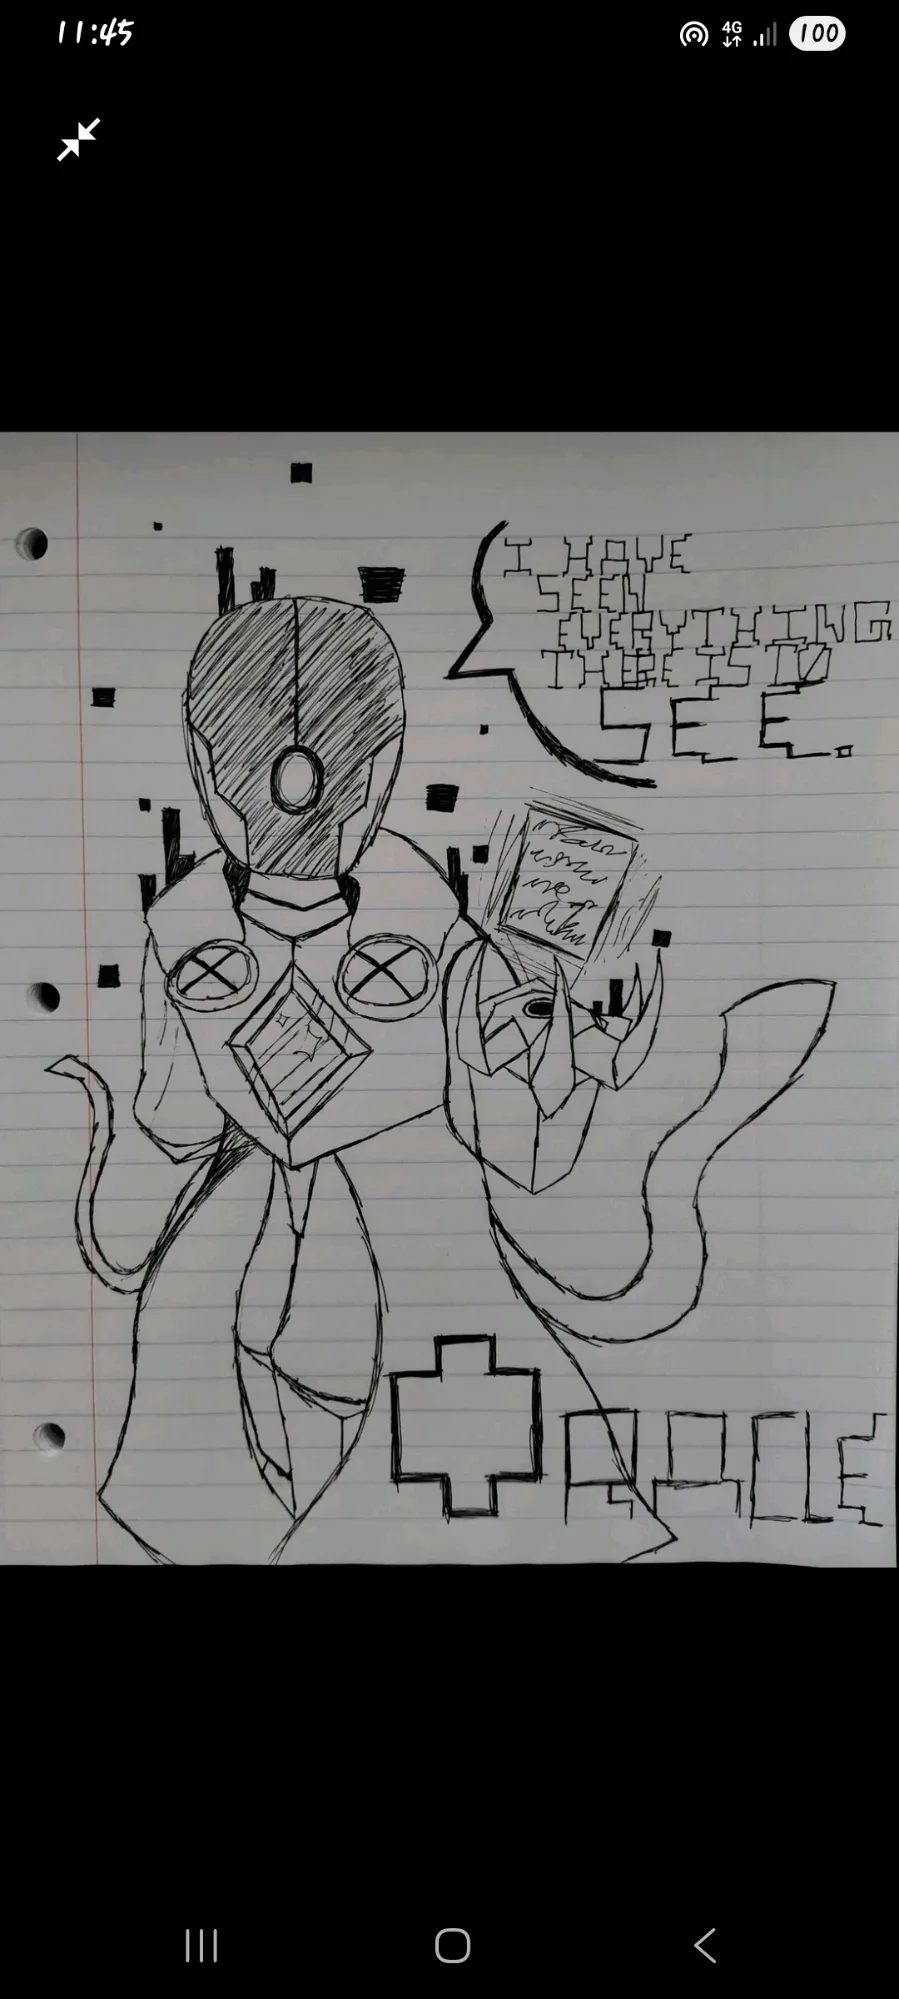 11:45
4G
100
I HAVE
SEEN
EVERYTHING
THERE IS TO
SEE.
ORACLE